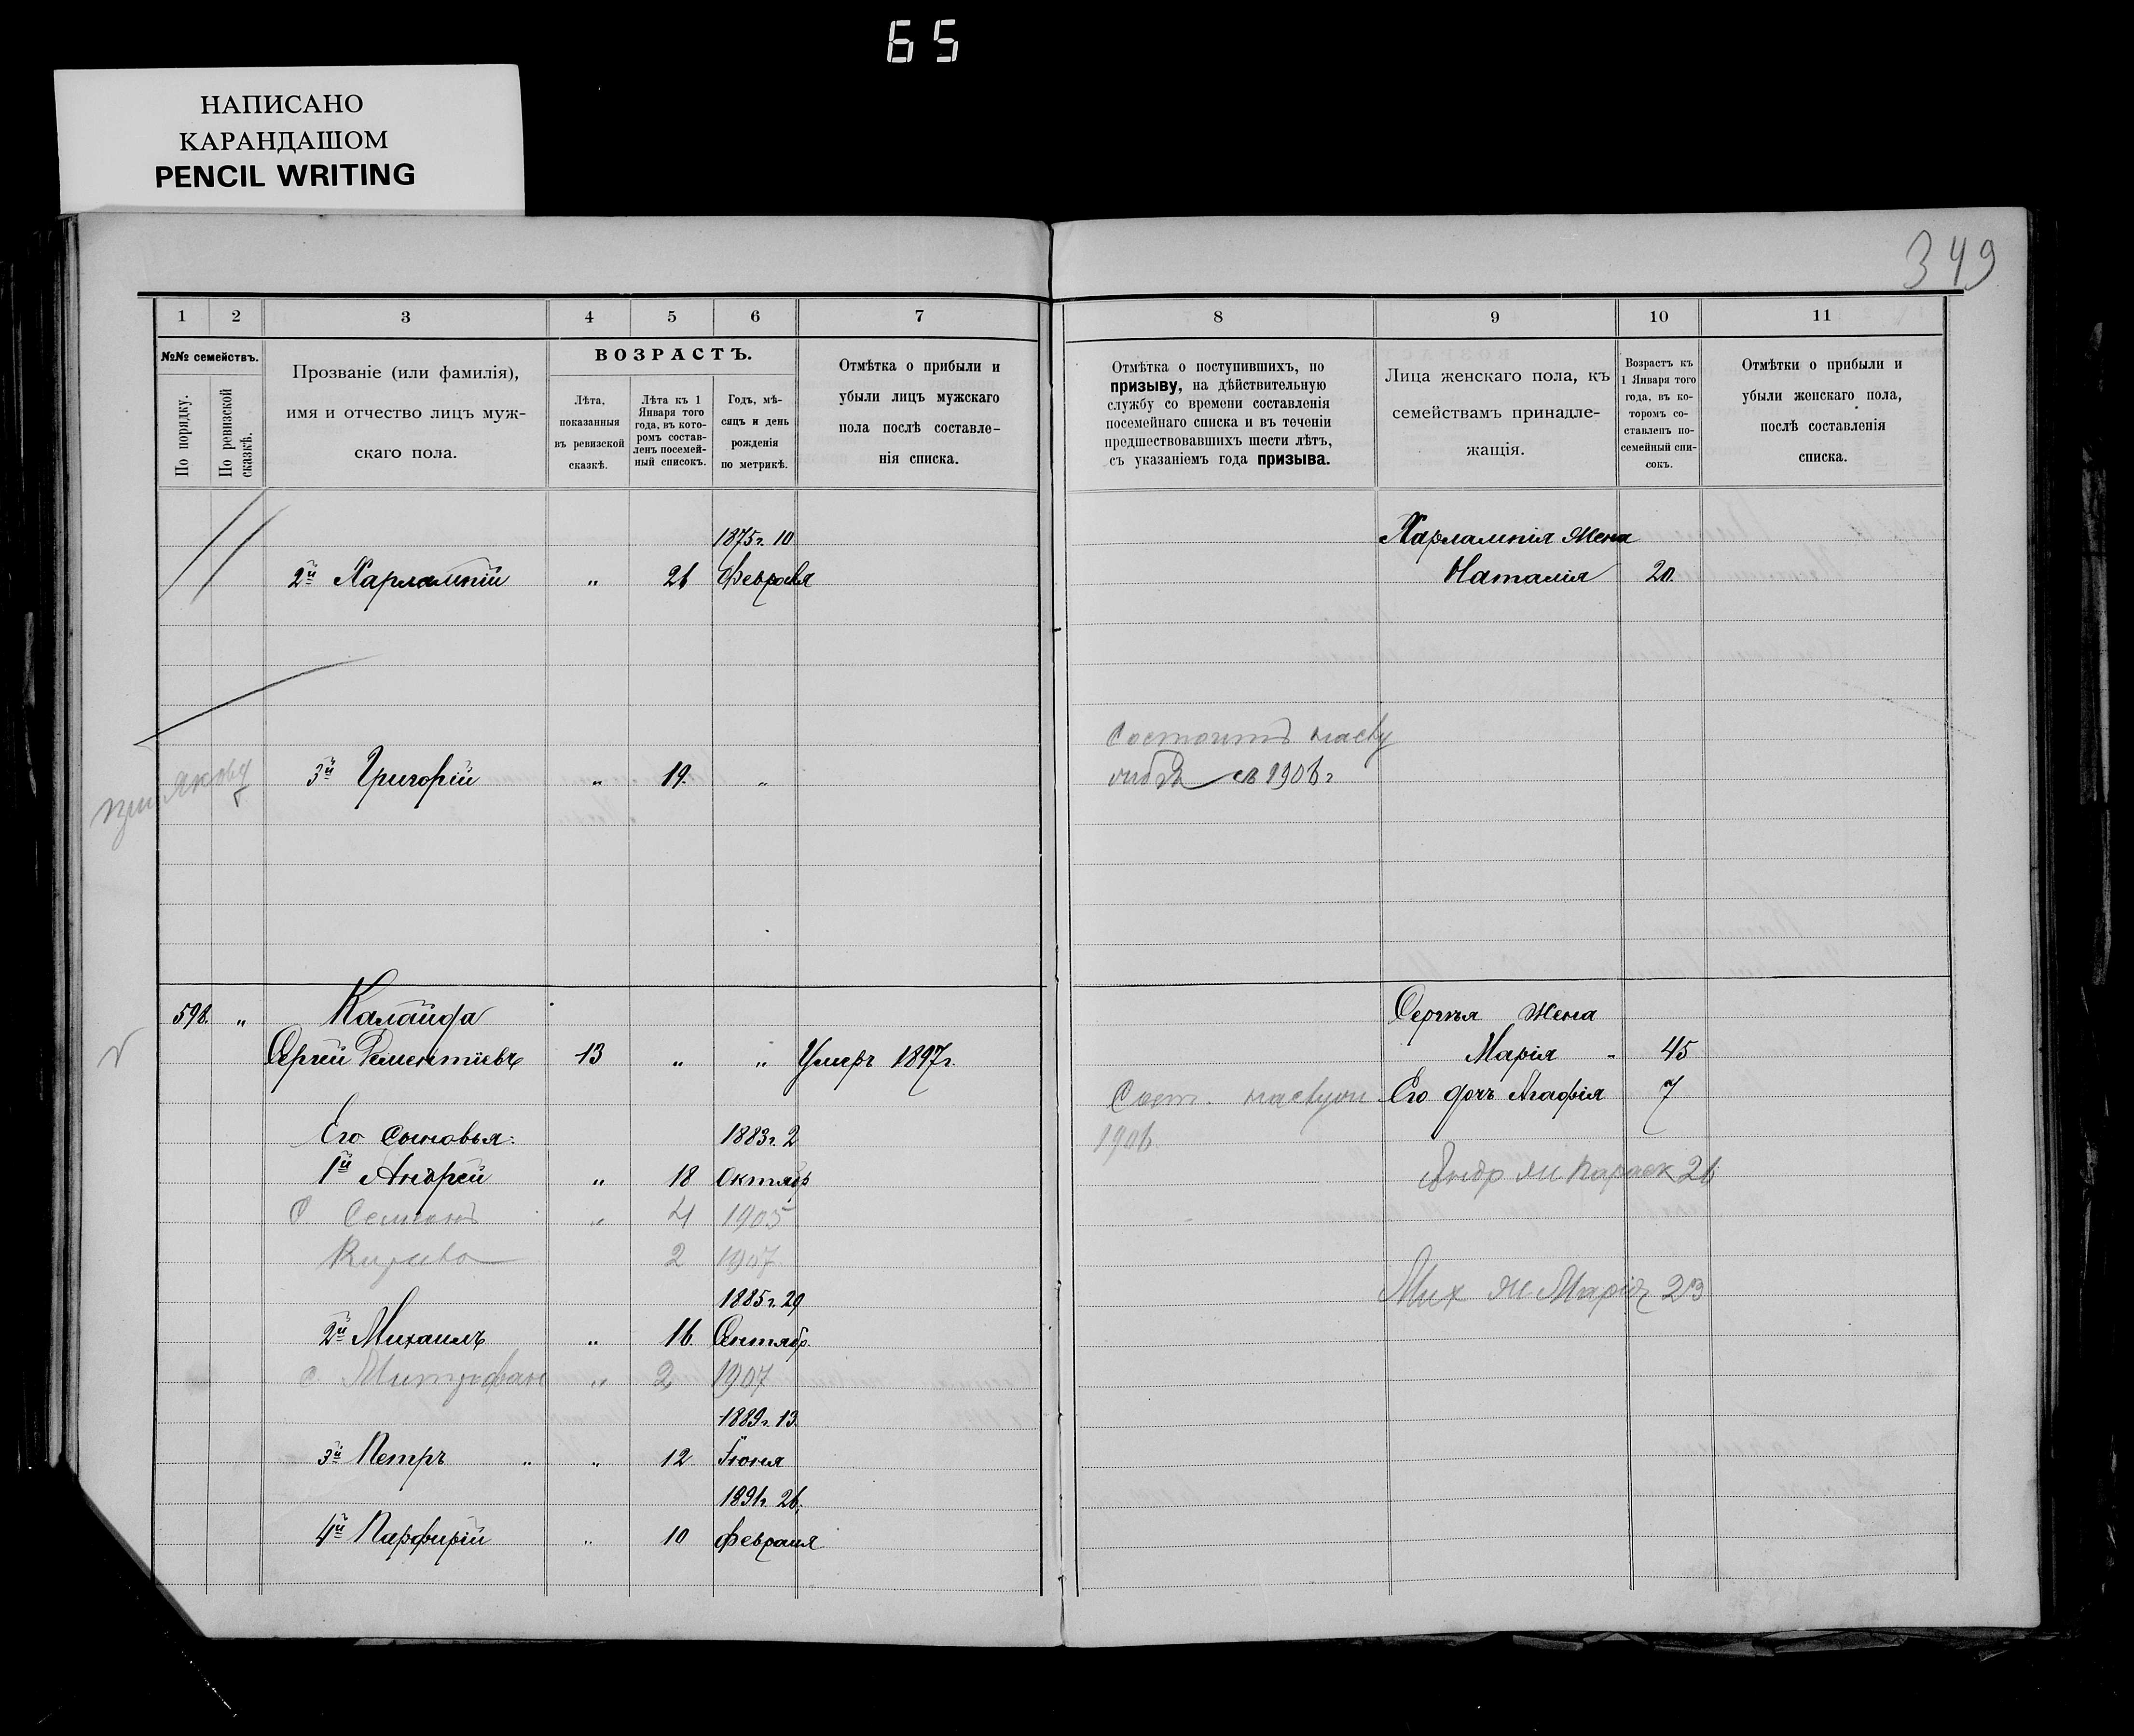 65
НАПИСАНО
КАРАНДАШОМ
PENCIL WRITING
349
1 2 3 4 5 6 7 8 9 10 11
№№ семействъ.
По порядку.
По ревизской сказкѣ.
Прозваніе (или фамилія),
имя и отчество лицъ муж-
скаго пола.
ВОЗРАСТЪ.
Лѣта,
показанныя
въ ревизской
сказкѣ.
Лѣта къ 1
Января того
года, въ кото-
ромъ состав-
ленъ посемей-
ный списокъ.
Годъ, мѣ-
сяцъ и день
рожденія
по метрикѣ.
Отмѣтка о прибыли и
убыли лицъ мужскаго
пола послѣ составле-
нія списка.
Отмѣтка о поступившихъ, по
призыву, на дѣйствительную
службу со времени составленія
посемейнаго списка и въ теченіи
предшествовавшихъ шести лѣтъ,
съ указаніемъ года призыва.
Лица женскаго пола, къ
семействамъ принадле-
жащія.
Возрастъ къ
1 Января того
года, въ ко-
торомъ со-
ставленъ по-
семейный спи-
сокъ.
Отмѣтки о прибыли и
убыли женскаго пола,
послѣ составленія
списка.
1875 г. 10 Харлампія Жена
2й Харлампій " 26 Февраля Наталія 20
Состоитъ
3й Григорій " 19. " съ 1906 г
598. " Калайда Сергѣя Жена
Сергей Геменетиевъ 13 " " Умеръ 1897 г. Марія " 45
Сост. Его дочь Агафія 7
Его сыновья: 1883 г. 2 1906
1й Андрей " 18 Октябр Андр ж Параск 26
С Семенъ " 4 1905
2 1907
1885 г. 29 Мих ж Марія 23
2й Михаилъ " 16 Сентябр.
С Митрофан " 2 1907
1889 г. 13
3й Петръ " " 12 Іюня
1891 г. 26.
4й Парфирій " 10 февраля